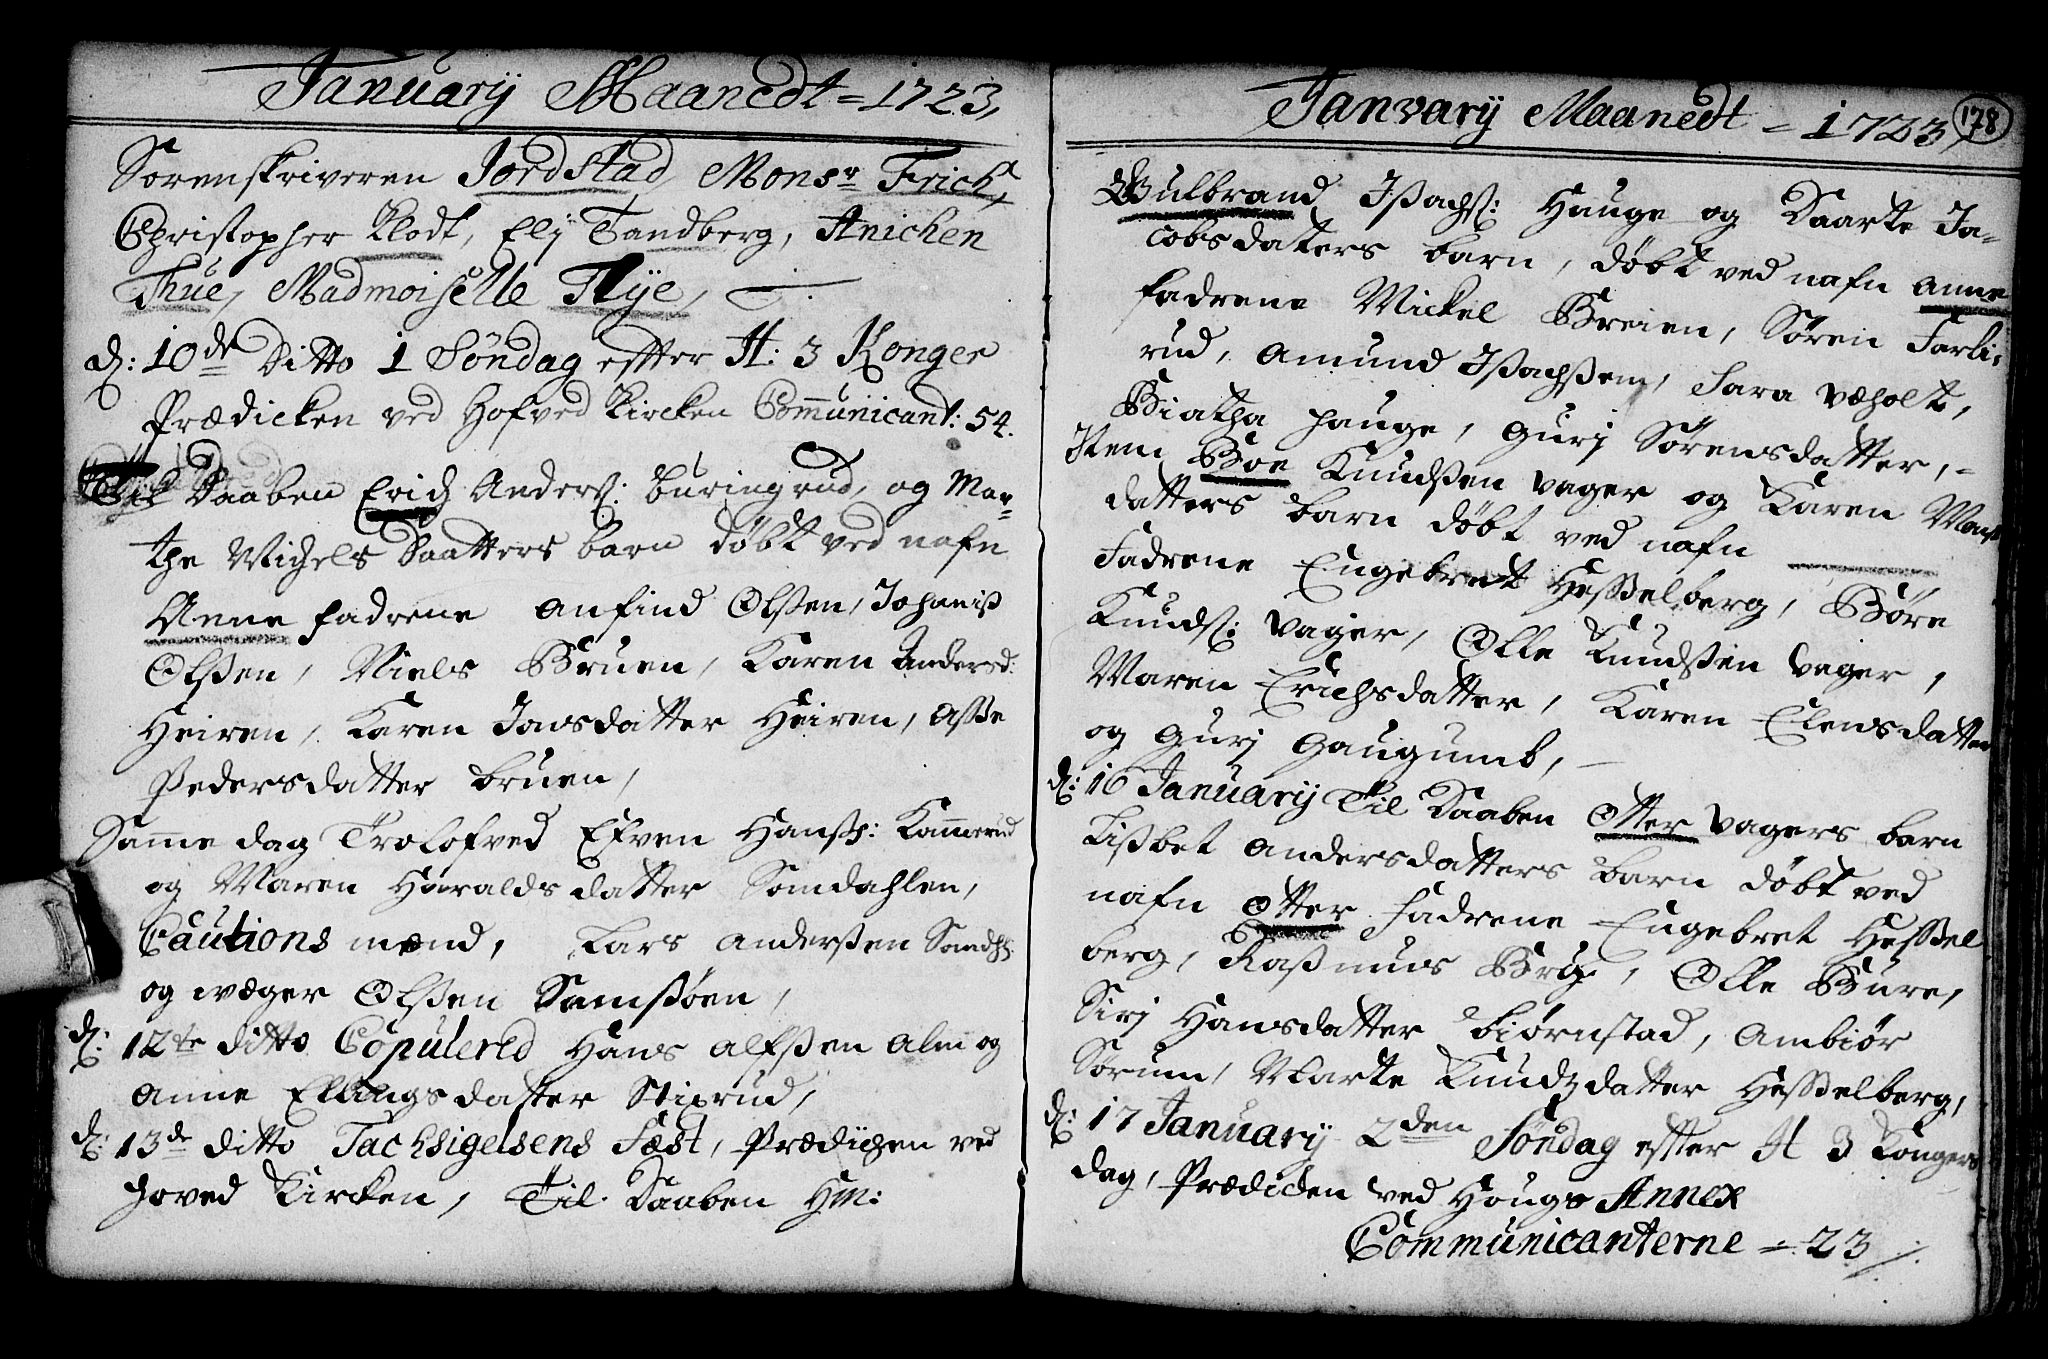 Januarÿ Maanedt = 1723,
Sorenskriveren Jordstad, Monsr Frich,
Christopher Klodt, Elj Sandberg, Anichen
Thue, Madmoiselle Flÿe,
d: 10de Ditto 1 Söndag effter H: 3 Konger
Prædicken ved Hofved Kircken Com̄unicant: 54.
Til Daaben Erich Anders: buringrud, og Mar=
the Michels Daatters barn döbt ved nafn
Anne fadrene Anfind Olßen, Johanis
Olßen, Niels Bruen, Karen Andersd:
Heiren, Karen Jansdatter Heiren, Aße
Pedersdatter bruen,
Sam̄e dag Trolofved Efven Hanss: Kam̄erud
og Maren Haralds datter Somdahlen,
Cautions mænd, Lars Anderßen
og wæger Olßen Samsöen,
d: 12te ditto Copulered Hans Alfßen Alm og
Anne Ellingsdatter Stixrud,
d: 13de ditto Tachsigelsens Fæst, Prædichen ved
hoved Kircken, Til Daaben Hm:
Januarÿ Maanedt = 1723, 178
Gulbrand Ißachs: Hauge og Daarte Ja=
cobsdatters barn, döbt ved nafn Anne
fadrene Mickel Breien, Sören Farbi:
rud, Amund Ißachßem, Sara Væholt,
Biatha hauge, Gurj Sörensdatter, -
Item Boe Knudßen vager og Karen
datters barn döbt ved nafn
Fadrene Engebret Heßelberg, Böre
Knuds: Vager, Olle Knudßen Vager,
Maren Erichsdatter, Karen Elensdatter
og Gurj Gaugumb,
d: 16 Januarÿ Til Daaben Otter Vagers barn
Lißbet Andersdatters barn döbt ved
nafn Otter Fadrene Engebret Heßel
berg, Raßmus Brÿ, Olle Bure,
Sirj Hansdatter biörnstad, Ambiör
Sörum, Marte Knudzdatter Heßelberg,
d: 17 Januarÿ 2den Söndag effter H 3 Kongers
dag, Prædicken ved Hougs Annex
Communicanterne = 23